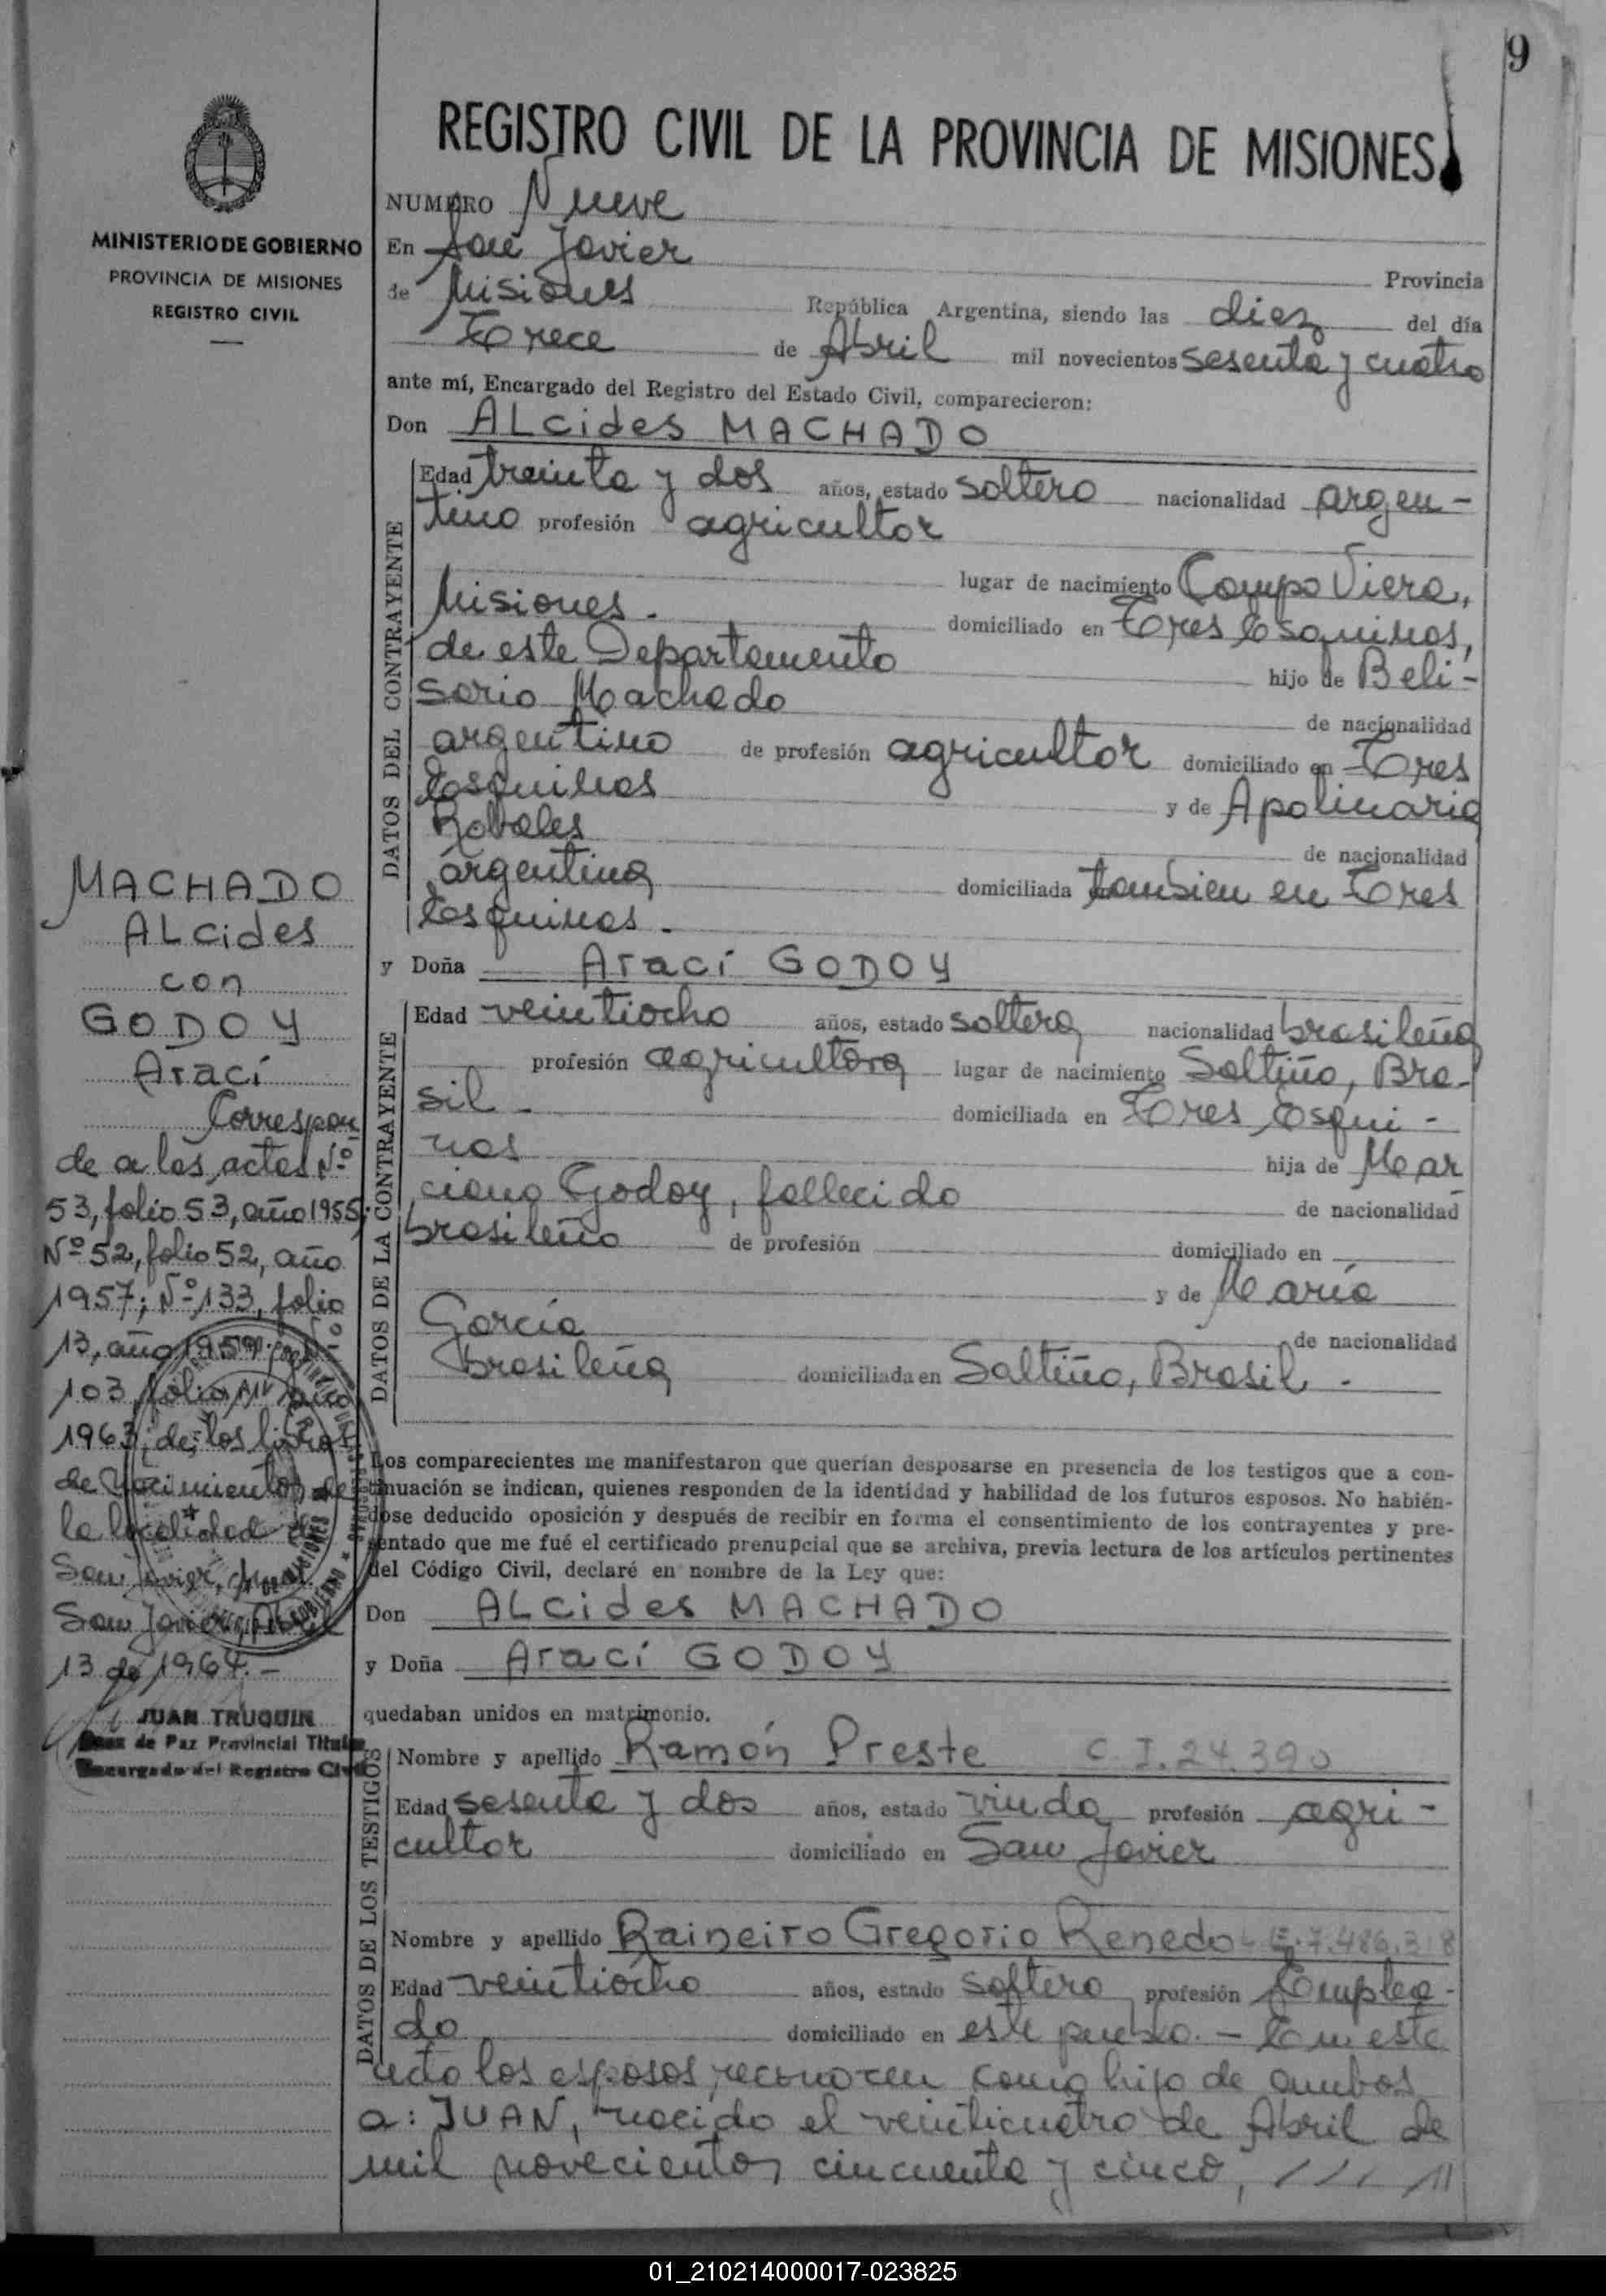 9
REGISTRO CIVIL DE LA PROVINCIA DE MISIONES
MINISTERIO DE GOBIERNO
PROVINCIA DE MISIONES
REGISTRO CIVIL
NUMERO Nueve
En San Javier Provincia
de Misiones República Argentina, siendo las diez del día
Trece de Abril mil novecientos sesenta y cuatro
ante mí, Encargado del Registro del Estado Civil, comparecieron:
Don ALcides MACHADO
DATOS DEL CONTRAYENTE
Edad treinta y dos años, estado soltero nacionalidad argen-
tino profesión agricultor
lugar de nacimiento Campo Viera,
Misiones. domiciliado en Tres Esquinas,
de este Departamento hijo de Beli-
sario Machado de nacionalidad
argentino de profesión agricultor domiciliado en Tres
Esquinas y de Apolinaria
Robales de nacionalidad
argentina domiciliada tambien en Tres
Esquinas.
y Doña Arací GODOY
DATOS DE LA CONTRAYENTE
Edad veintiocho años, estado soltera nacionalidad brasileña
profesión agricultora lugar de nacimiento Saltiño, Bra-
sil. domiciliada en Tres Esqui-
nas hija de Mar
ciano Godoy, fallecido de nacionalidad
brasileño de profesión domiciliado en
y de María
García de nacionalidad
brasileña domiciliada en Saltiño, Brasil.
Los comparecientes me manifestaron que querían desposarse en presencia de los testigos que a con-
tinuación se indican, quienes responden de la identidad y habilidad de los futuros esposos. No habién-
dose deducido oposición y después de recibir en forma el consentimiento de los contrayentes y pre-
sentado que me fué el certificado prenupcial que se archiva, previa lectura de los artículos pertinentes
del Código Civil, declaré en nombre de la Ley que:
Don ALcides MACHADO
y Doña Arací GODOY
quedaban unidos en matrimonio.
DATOS DE LOS TESTIGOS
Nombre y apellido Ramón Preste C.I.24.390
Edad sesenta y dos años, estado viudo profesión agri-
cultor domiciliado en San Javier
Nombre y apellido Raineiro Gregorio Renedo L.E.7.486.318
Edad veintiocho años, estado soltero profesión Emplea-
do domiciliado en este pueblo.- En este
acto los esposos reconocen como hijo de ambos
a: JUAN, nacido el veinticuatro de Abril de
mil novecientos cincuenta y cinco,
MACHADO
ALcides
con
GODOY
Arací
Correspon
de a las actas Nº
53, folio 53, año 1955;
Nº 52, folio 52, año
1957; Nº 133, folio
13, año 1959; Nº
103, folio año
1963, de los libros
de Nacimientos de
la localidad de
San Javier,
San Javier, Abril
13 de 1964.-
JUAN TRUQUIN
Juez de Paz Provincial Titular
Encargado del Registro Civil
01_210214000017-023825